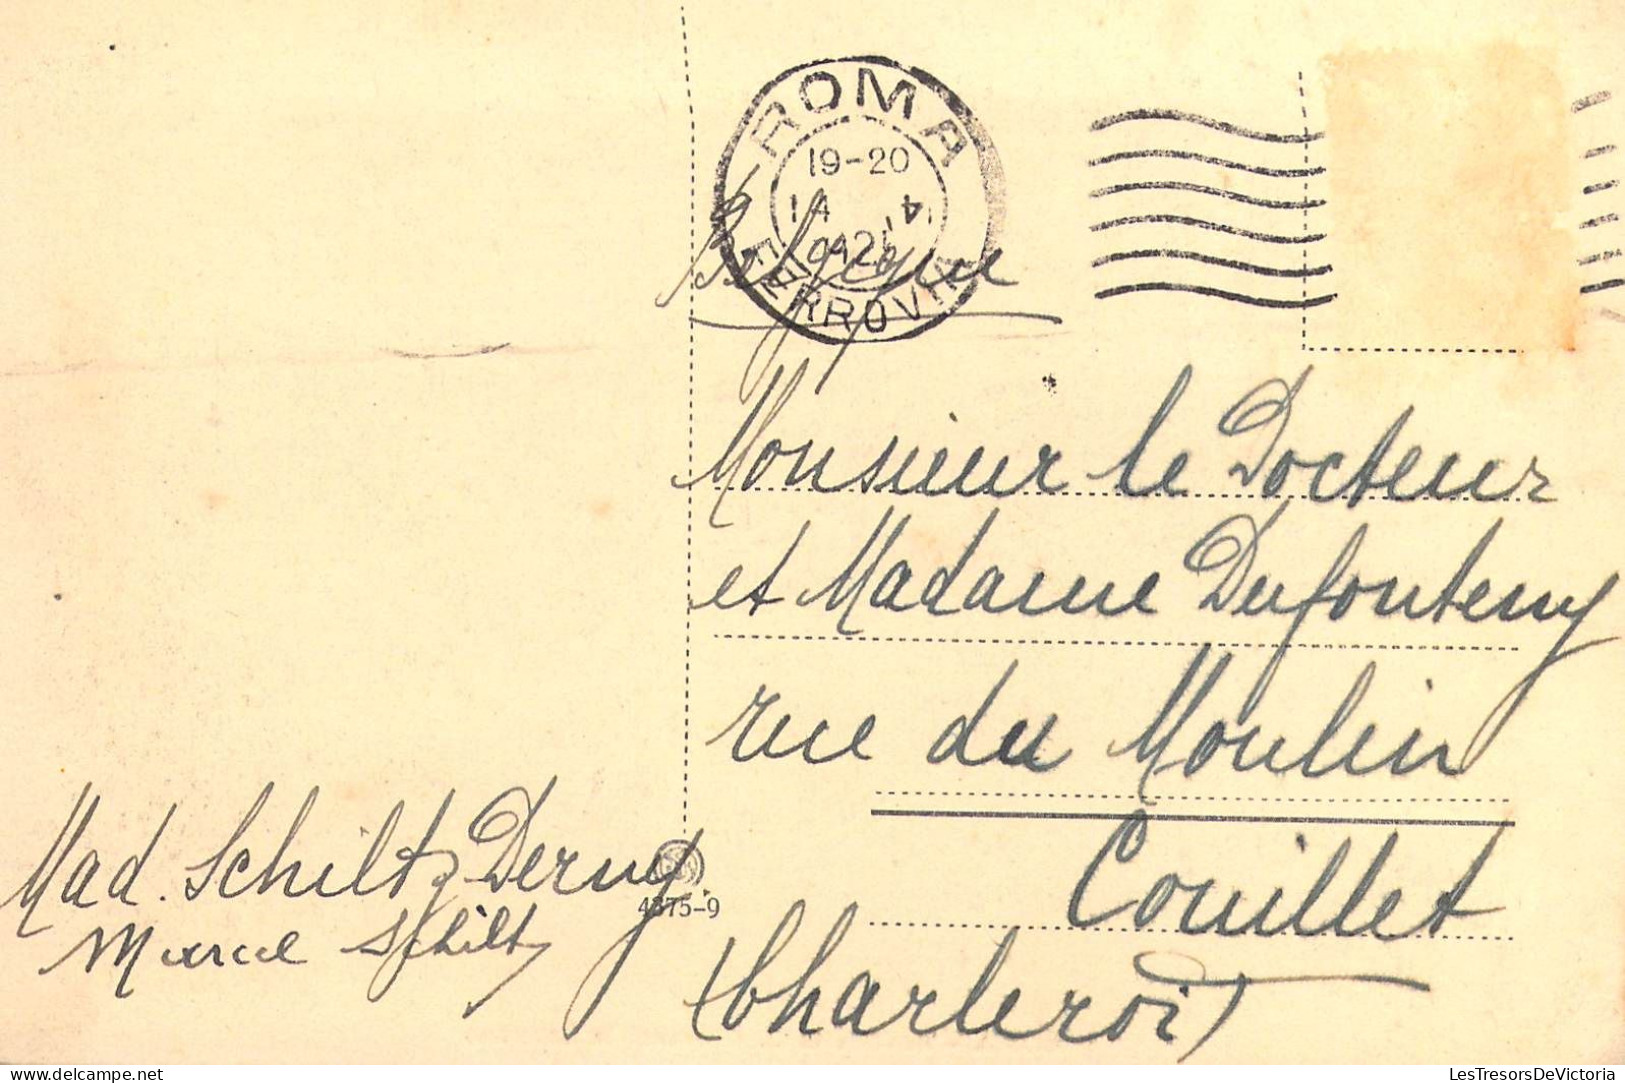 ROMA
19-20
FERROVIA
Belgique
Monsieur le Docteur
et Madame Dufonteny
rue du Moulin
Couillet
(Charleroi)
Mad. Schiltz Derny
Marcel Schiltz
4375-9
LesTresorsDeVictoria